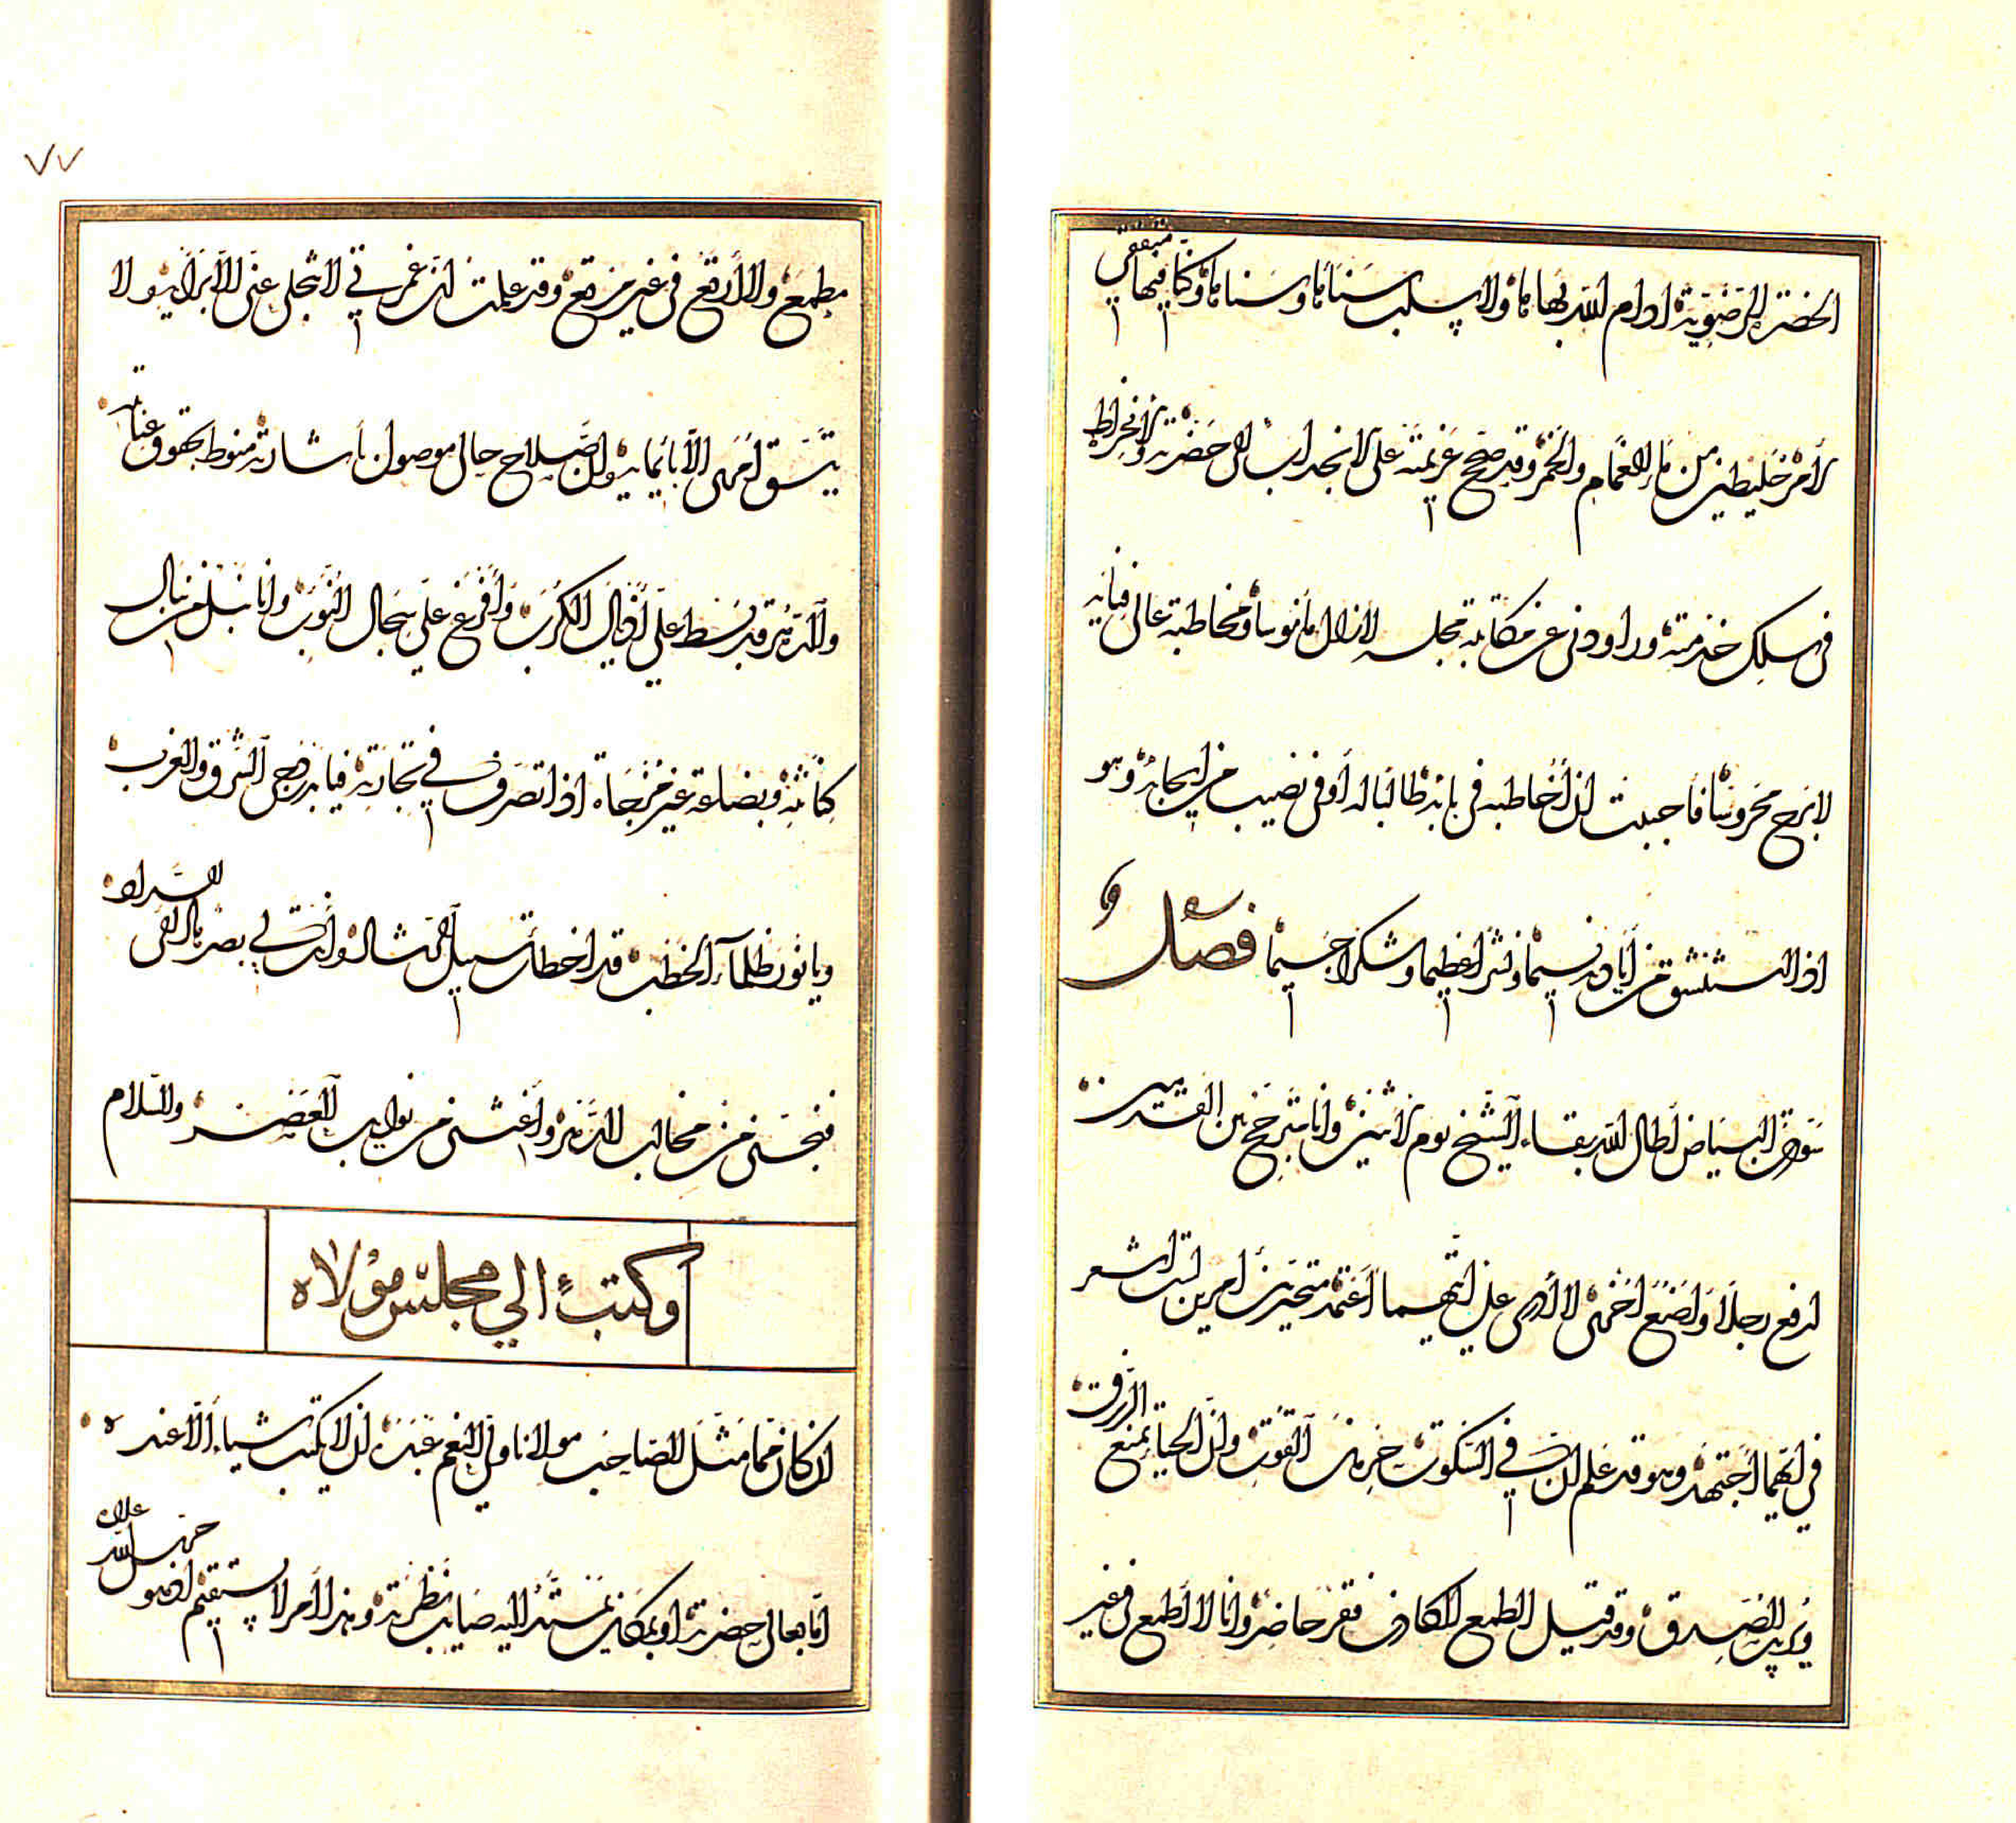 الحضرة الرضوية ادام الله بهاءها ولا سلب سناءها وسناها وكنا فيها متفقين
لأمر خليطين من ماء الغمام والخمر وقد صحح عزيمته على الانجذاب الى حضرته والانخراط
في سلك خدمته وراودني عن مكاتبة مجلسه لا زال مأنوسا ومخاطبة عالي فنائه
لا برح محروسا فأحببت ان أخاطبه في بابه طالبا له أوفى نصيب من إيجابه وهو
اذا استنشق من أياديه نسيما ونثرا عظيما وشكرا جسيما فصل و
البياض أطال الله بقاء الشيخ يوم الاثنين وانا مترجح بين
ارفع رجلا وأضع أخرى لا أدري على أيهما أعتمد متحير بين أمرين لست أشعر
في أيهما أجتهد وهو قد علم ان في السكوت خير من القوت وان الحياء يمنع الرزق
الصدق وقد قيل الطمع الكاذب فقر حاضر وانا لا أطمع في غير
٧٧
مطمع ولا أرتع في غير مرتع وقد علمت ان غمرتي لا تنجلي عني الا برأيه ولا
يتسق أمري الا بإيمائه وان صلاح حالي موصول بإشارته منوط بحقوق عنايته
والدهر قد بسط علي أذيال الكرب وأفرغ علي سجال النوب وانا نبل من نبال
كنانته وبضاعة غير مزجاة اذا تصرف في تجارته فيا بدر دجى الشرق والغرب
ويا نور ظلماء الخطب قد اخطأت سبيل وانت لي بصر بالقرى
فنجني من مخالب الدهر وأغثني من نوايب العصر والسلام
وكتب الي مجلس مولاه
ان كان فيما مثل الصاحب مولانا ولي النعم عبده ان لا يكتب شياء الا عنده
اما بعالي حضرته او بمكان يمتد اليه صايب نظرته وهذا الأمر لا يستقيم اصول